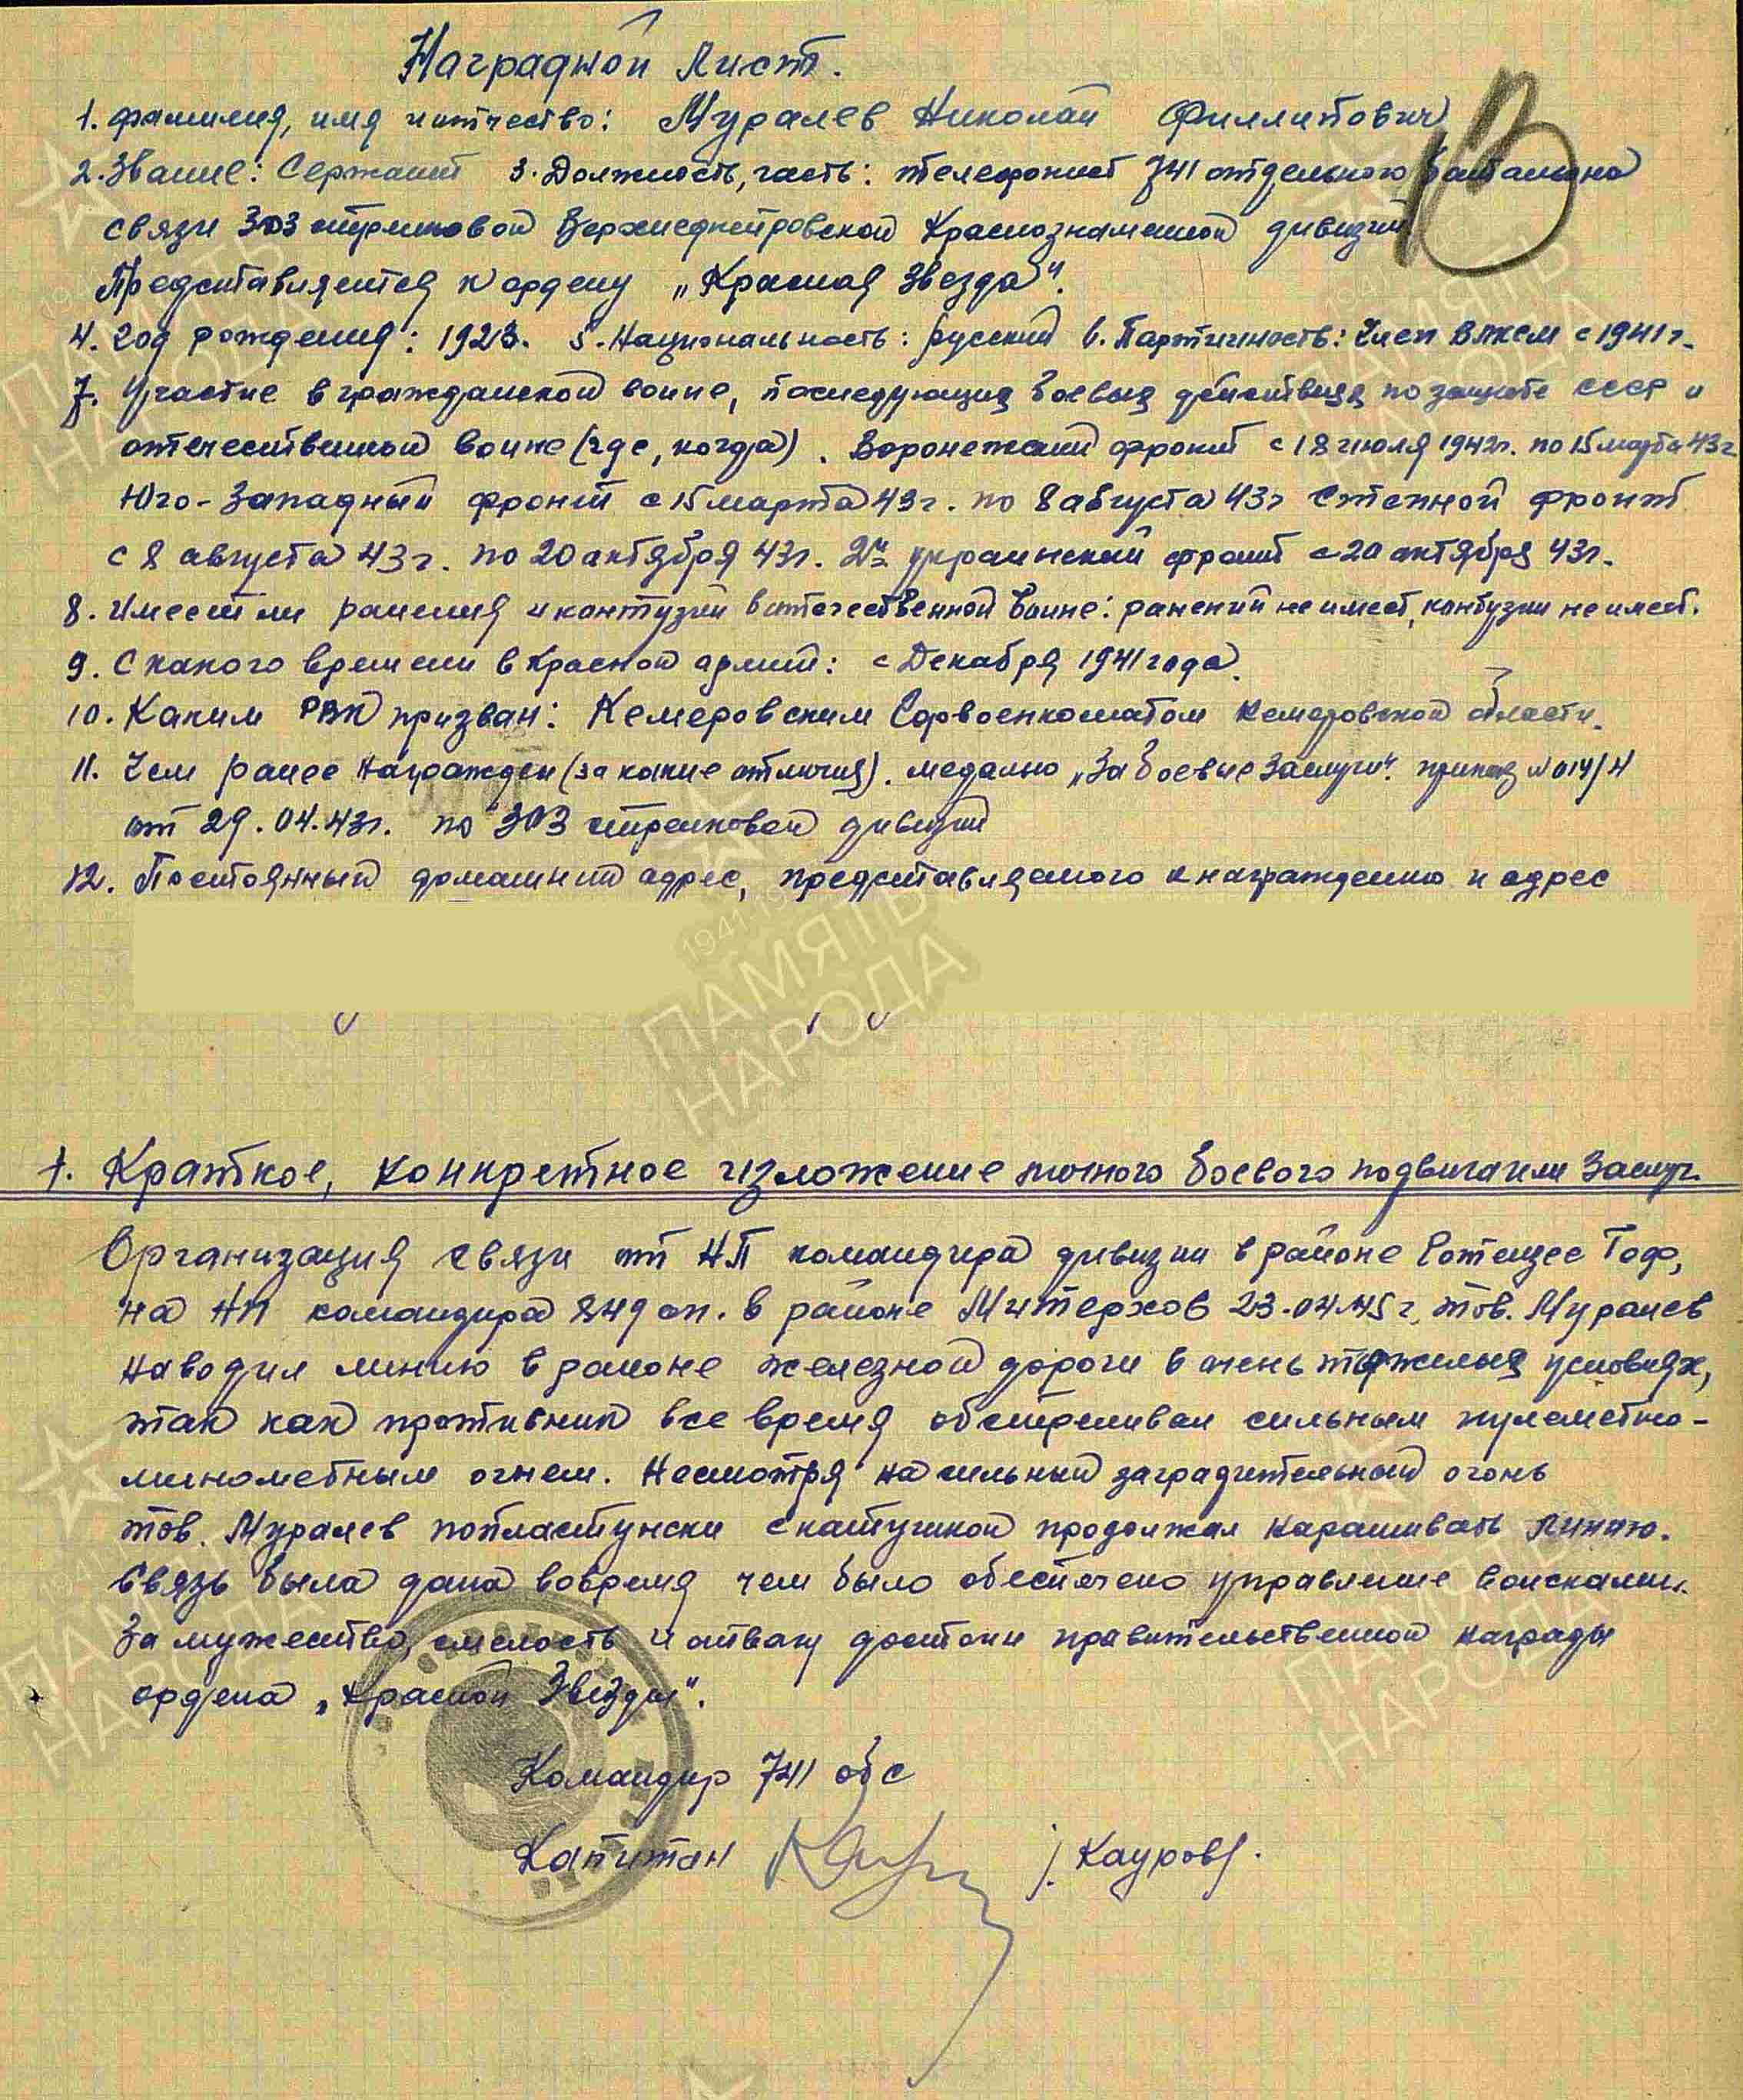 Наградной Лист.
1. фамилия, имя и отчество: Муралев Николай Филлипович
2. Звание: Сержант 3. Должность, часть: телефонист 741 отдельного батальона
связи 303 стрелковой Верхнеднепровской Краснознаменной дивизии
Представляется к ордену „Красная Звезда".
4. год рождения: 1923. 5. Национальность: русский 6. Партийность: Член ВЛКСМ с 1941 г.
7. Участие в гражданской воине, последующия боевыя действия по защите СССР и
отечественной воине (где, когда). Воронежский фронт с 18 июля 1942г. по 15 марта 43г
Юго-Западный фронт с 15 марта 43г. по 8 августа 43г Степной фронт
с 8 августа 43г. по 20 октября 43г. 2й украинский фронт с 20 октября 43г.
8. Имеет ли ранения и контузии в отечественной воине: ранений не имеет, контузии не имеет.
9. С какого времени в Красной армии: с Декабря 1941 года.
10. Каким РВК призван: Кемеровским Горвоенкоматом Кемеровской области.
11. Чем ранее награжден (за какие отличия). медалью „За боевые Заслуги". приказ №014/Н
от 29.04.43г. по 303 стрелковой дивизии
12. Постоянный домашний адрес, представляемого к награждению и адрес
1. Краткое, конкретное изложение личного боевого подвига или Заслуг.
Организация связи от НП командира дивизии в районе Ротензее Гоф,
на НП командира 849 сп. в районе Митерхоф 23.04.45г. тов. Муралев
наводил линию в районе железной дороги в очень тяжелыя условиях,
так как противник все время обстреливал сильным пулеметно-
минометным огнем. Несмотря на сильный заградительный огонь
тов. Муралев попластунски с катушкой продолжал наращивать линию.
Связь была дана вовремя чем было обеспечено управление воисками.
За мужество, смелость и отвагу достоин правительственной награды
ордена „Красной Звезды".
Командир 741 обс
Капитан /Кауров/.
ПАМЯТЬ НАРОДА